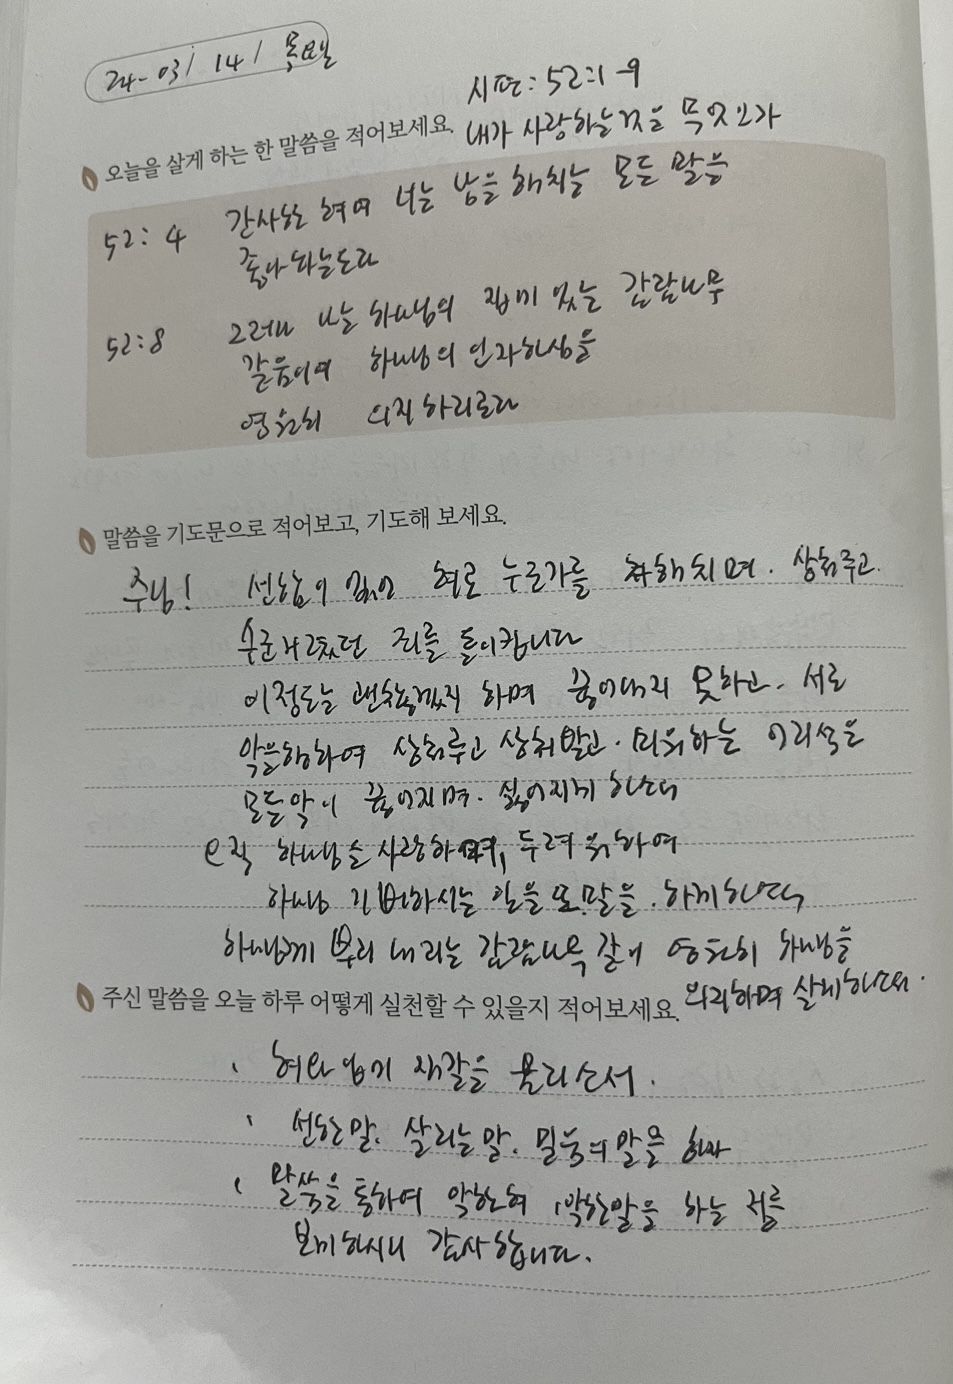 24-03/ 14/ 목요일
시편: 52:1-9
내가 사랑하는 것은 무엇인가
오늘을 살게 하는 한 말씀을 적어보세요.
52: 4 간사한 혀여 너는 남을 해치는 모든 말을
좋아하는도다
52:8 그러나 나는 하나님의 집에 있는 감람나무
같음이여 하나님의 인자하심을
영원히 의지하리로다
말씀을 기도문으로 적어보고, 기도해 보세요.
주님! 선함이 없는 혀로 누군가를 해치며. 상처주고.
수군거렸던 죄를 돌이킵니다
이정도는 괜찮겠지 하며 끊어내지 못하고. 서로
악을행하여 상처주고 상처받고. 미워하는 어리석을
모든악이 끊어지며. 싫어지게 하소서
오직 하나님을 사랑하며, 두려워하여
하나님 기뻐하시는 일을 또.말을. 하게하시며
하나님께 뿌리 내리는 감람나무 같이 영원히 하나님을
의지하며 살게하소서.
주신 말씀을 오늘 하루 어떻게 실천할 수 있을지 적어보세요.
혀와 입에 재갈을 물리소서.
선한말. 살리는말. 믿음의말을 하자
말씀을 통하여 악한혀 악한말을 하는 저를
보게하시니 감사합니다.